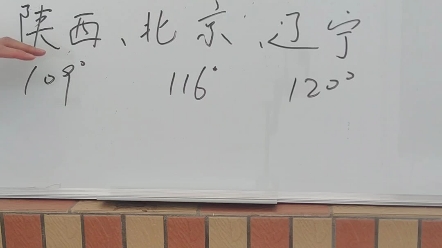 陕西、北京、辽宁
109° 116° 120°